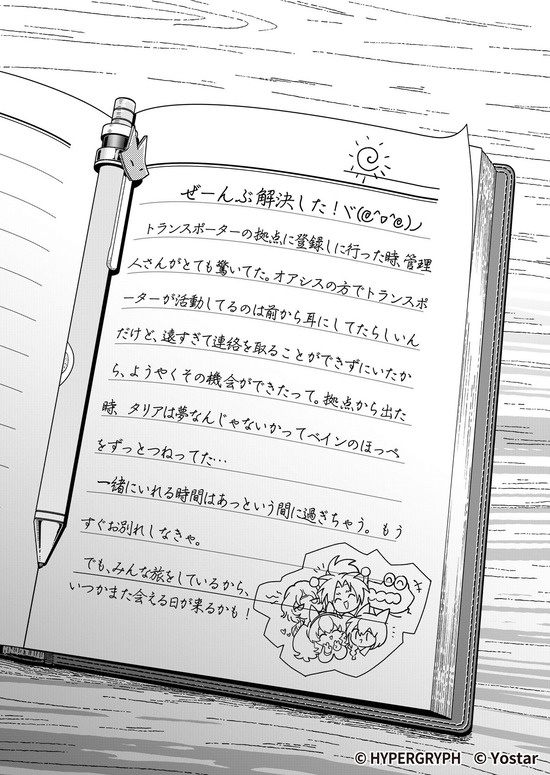 ぜーんぶ解決した！ヾ(@^▽^@)ノ
トランスポーターの拠点に登録しに行った時、管理
人さんがとても驚いてた。オアシスの方でトランスポ
ーターが活動してるのは前から耳にしてたらしいん
だけど、遠すぎて連絡を取ることができずにいたか
ら、ようやくその機会ができたって。拠点から出た
時、タリアは夢なんじゃないかってベインのほっぺ
をずっとつねってた…
一緒にいれる時間はあっという間に過ぎちゃう。もう
すぐお別れしなきゃ。
でも、みんな旅をしているから、
いつかまた会える日が来るかも！
© HYPERGRYPH © Yostar